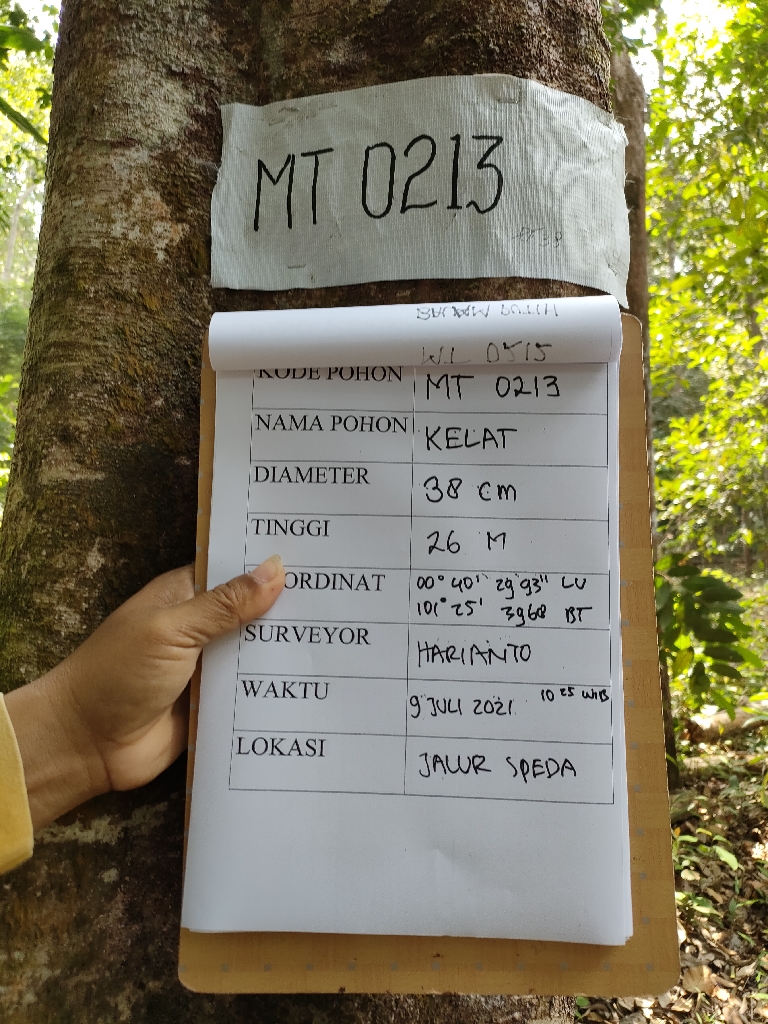 MT 0213
WL 0515
KODE POHON MT 0213
NAMA POHON KELAT
DIAMETER 38 cm
TINGGI 26 M
ORDINAT 00° 40'' 29 93'' LU
101° 25' 3968 BT
SURVEYOR HARIANTO
WAKTU 9 JULI 2021 10 25 WIB
LOKASI JALUR SPEDA